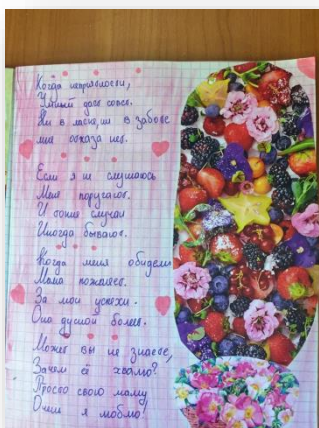 Когда неприятности,
Умный даёт совет.
Ни в ласке, ни в заботе
мне отказа нет.
Если я не слушаюсь
Меня поругают.
И такие случаи
Иногда бывают.
Когда меня обидели
Мама пожалеет.
За мои успехи
Она душой болеет.
Может вы не знаете,
Зачем её хвалю?
Просто свою маму
Очень я люблю!